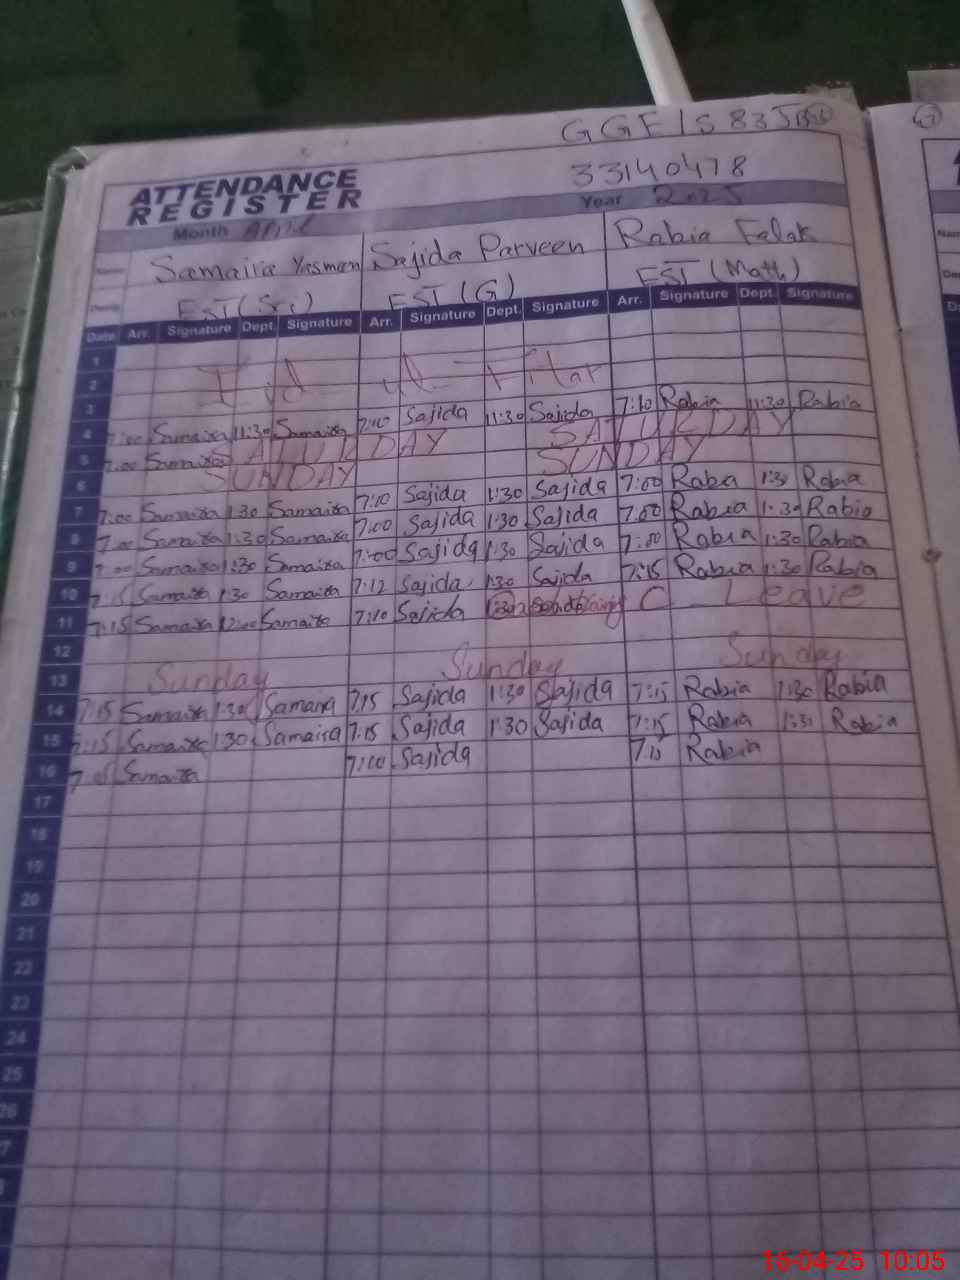 GGEIS 835
33140478
ATTENDANCE
REGISTER
Month April Year 2025
Name Samaira Yasmeen Sajida Parveen Rabia Falak
EST (Sci) EST (G) EST (Math)
Date Arr. Signature Dept. Signature Arr. Signature Dept. Signature Arr. Signature Dept. Signature
1
2 Eid ul Fitar
3 7:10 Sajida 11:30 Sajida 7:10 Rabia 11:30 Rabia
4 7:00 Samaira 11:30 Samaira
5 7:00 Samaira SATURDAY SATURDAY
6 SUNDAY SUNDAY
7 7:00 Samaira 1:30 Samaira 7:10 Sajida 1:30 Sajida 7:00 Rabia 1:30 Rabia
8 7:00 Samaira 1:30 Samaira 7:00 Sajida 1:30 Sajida 7:00 Rabia 1:30 Rabia
9 7:00 Samaira 1:30 Samaira 7:00 Sajida 1:30 Sajida 7:00 Rabia 1:30 Rabia
10 7:15 Samaira 1:30 Samaira 7:12 Sajida 1:30 Sajida 7:15 Rabia 1:30 Rabia
11 7:15 Samaira 12:00 Samaira 7:10 Sajida C Leave
12
13 Sunday Sunday Sunday
14 7:15 Samaira 1:30 Samaira 7:15 Sajida 1:30 Sajida 7:15 Rabia 1:30 Rabia
15 7:15 Samaira 1:30 Samaira 7:15 Sajida 1:30 Sajida 7:15 Rabia 1:30 Rabia
16 Samaira 7:10 Sajida 7:15 Rabia
17
18
19
20
21
22
23
24
25
26
16-04-25 10:05